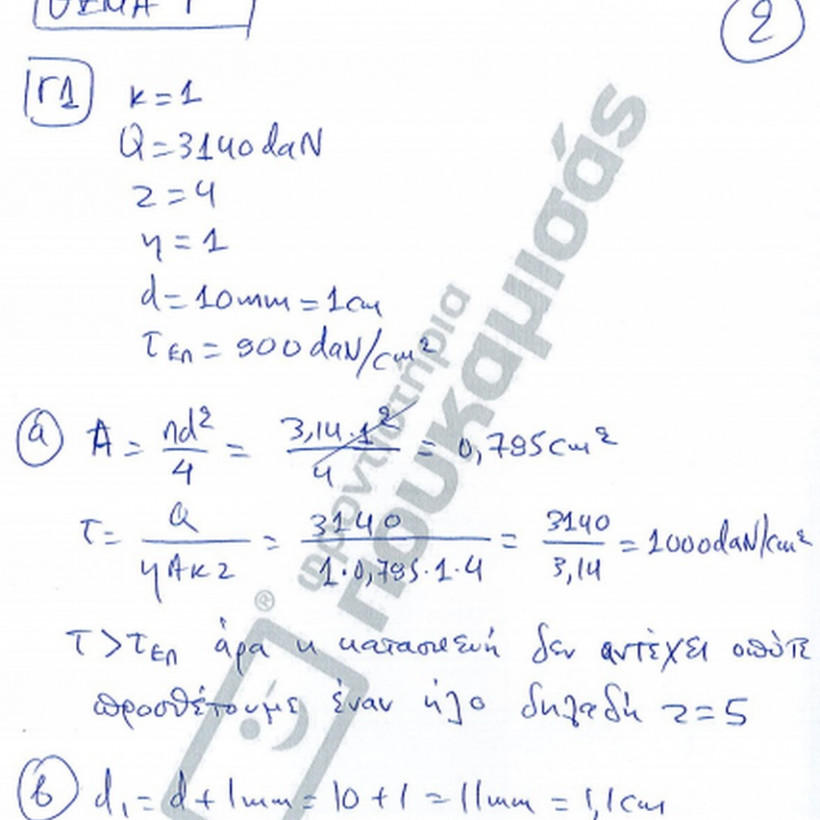 ΘΕΜΑ Γ
2
Γ1
κ=1
Q=3140daN
z=4
η=1
d=10mm=1cm
τεπ=900daN/cm²
α A = πd²/4 = 3,14·1²/4 = 0,785cm²
τ= Q/ηAκz = 3140/1·0,785·1·4 = 3140/3,14 =1000daN/cm²
τ>τεπ άρα η κατασκευή δεν αντέχει οπότε
προσθέτουμε έναν ήλο δηλαδή z=5
β d₁=d+1mm=10+1=11mm=1,1cm
φροντιστήρια
πουκαμισάς
®